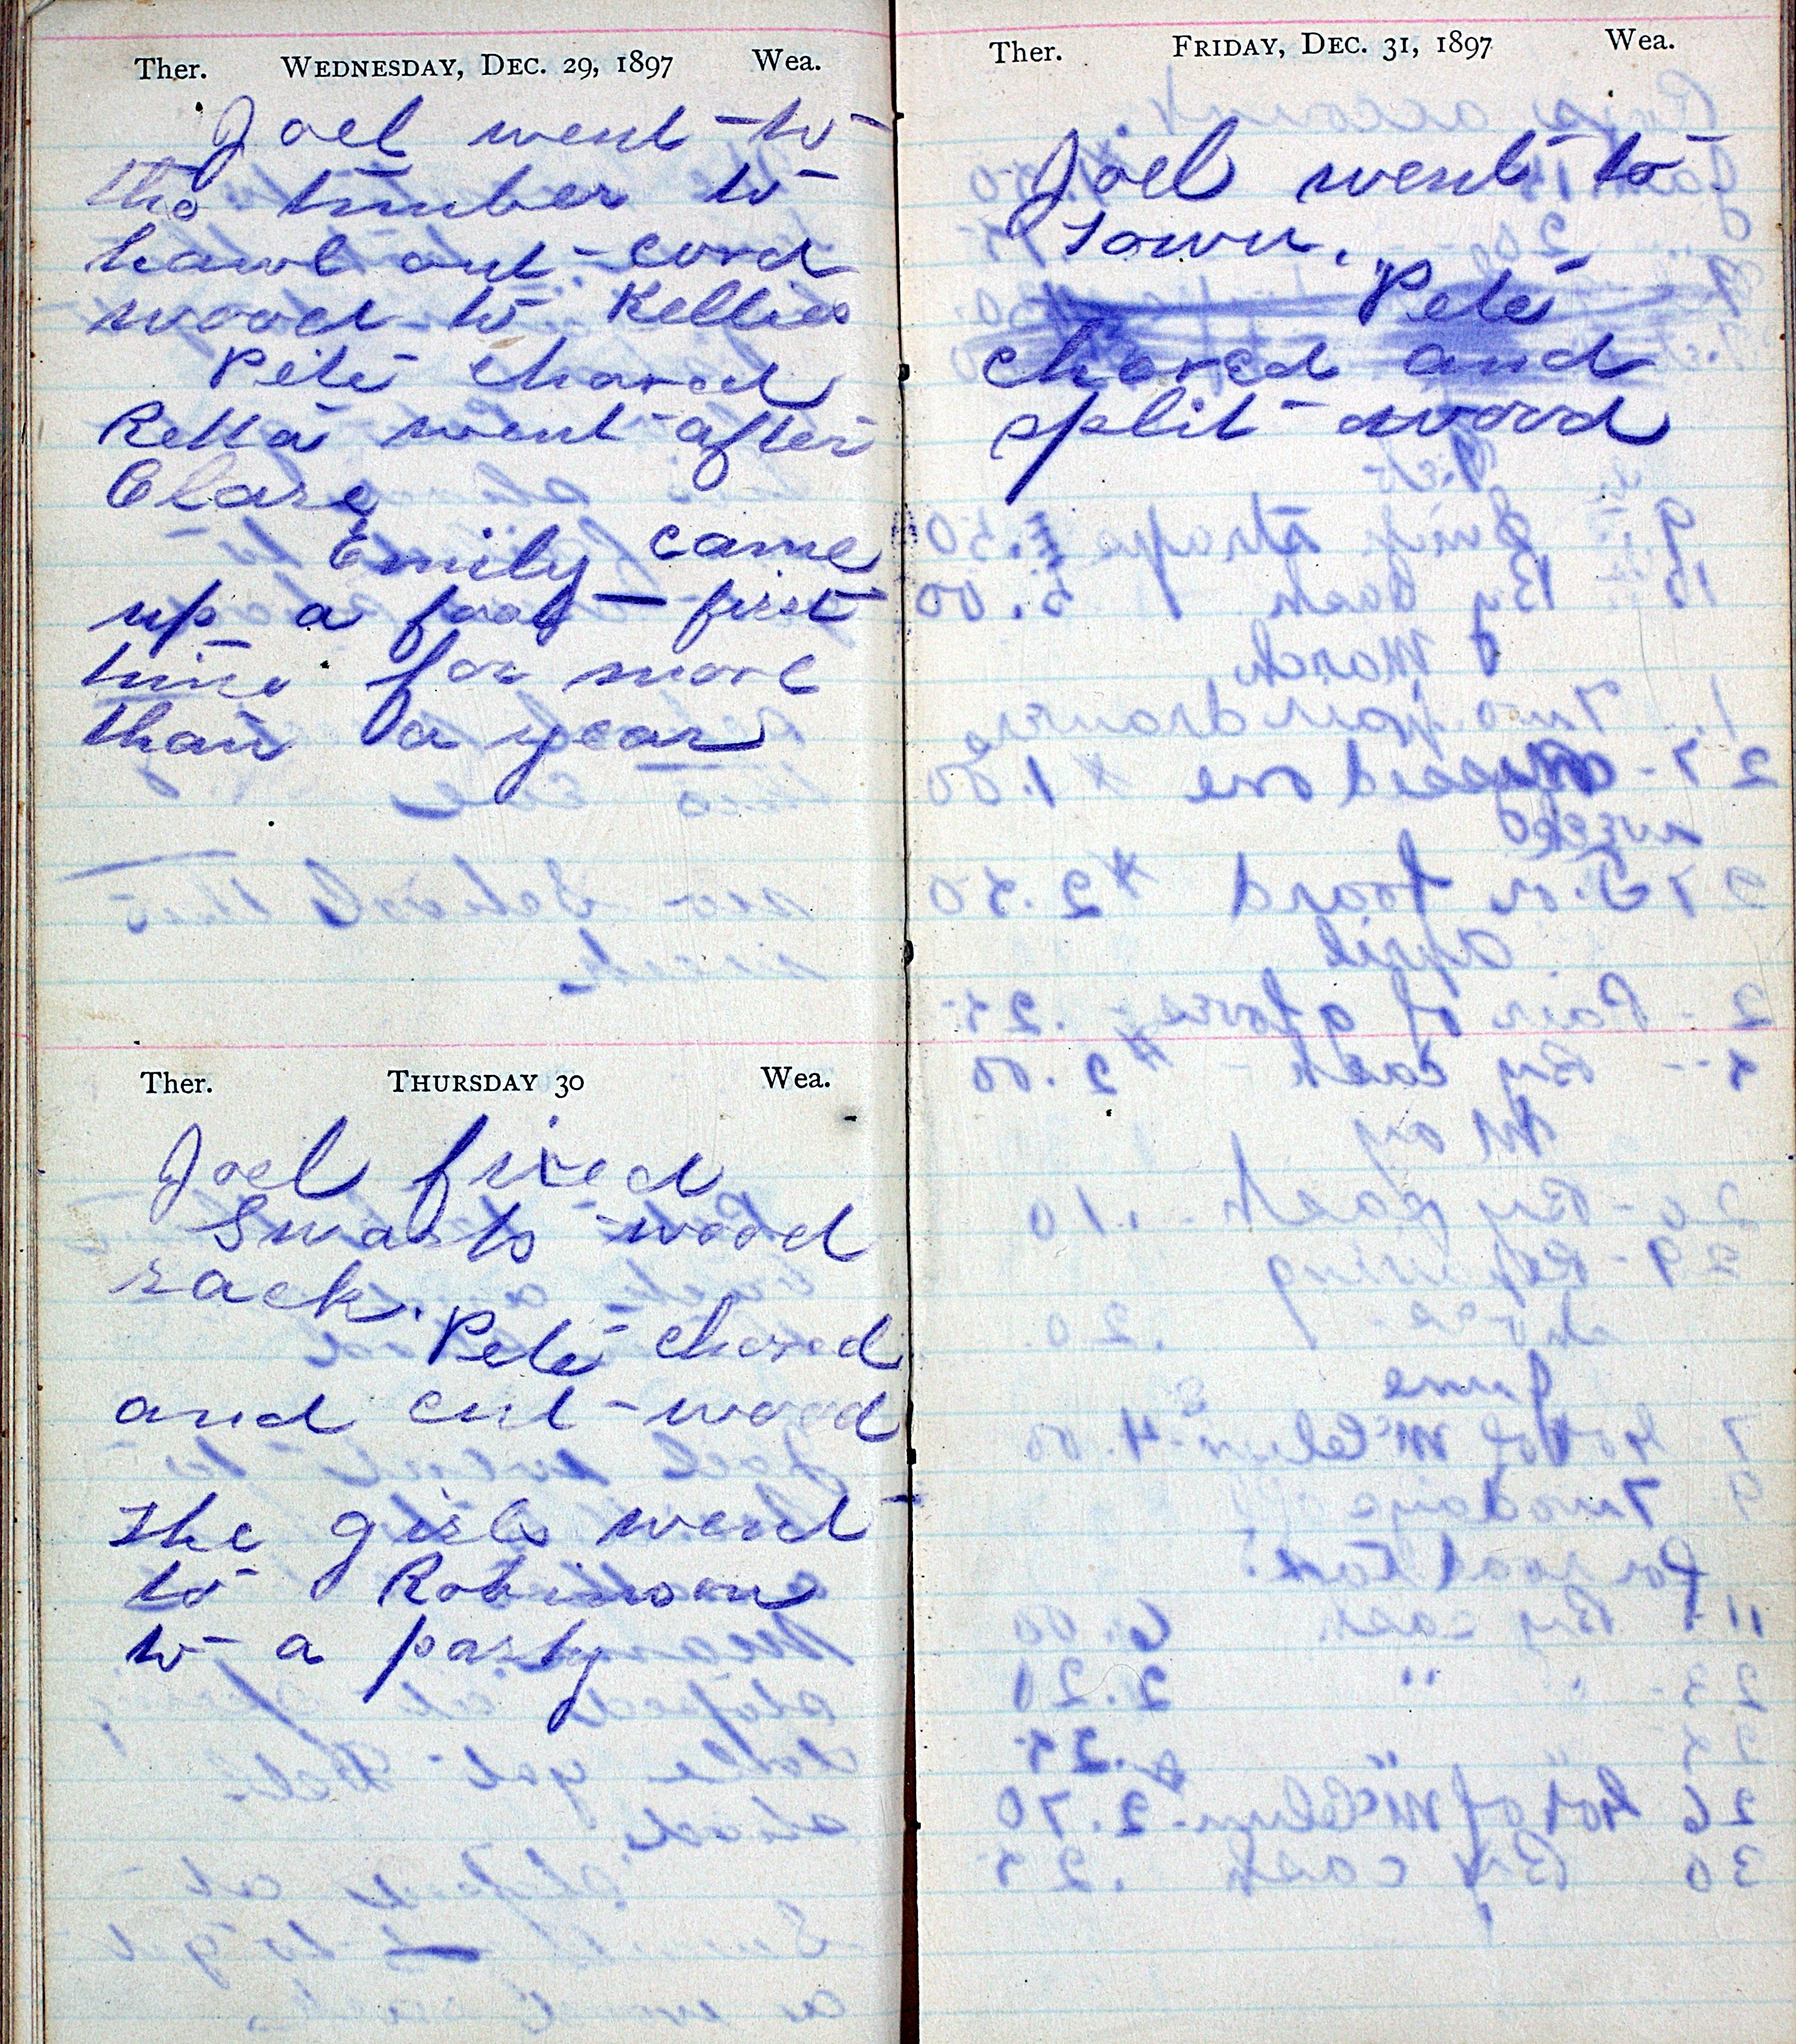 Ther. WEDNESDAY, DEC. 29, 1897 Wea.
Joel went to
the timber to
hawl out cord
wood to Kellies
Pete chored
Retta went after
Clare
Emily came
up a foot — first
time for more
than a year
Ther. THURSDAY 30 Wea.
Joel fixed
Swarts wood
rack.
Pete chored
and cut wood
The girls went
to Robinson
to a party
Ther. FRIDAY, DEC. 31, 1897 Wea.
Joel went to
Town.
Pete
chored and
split wood